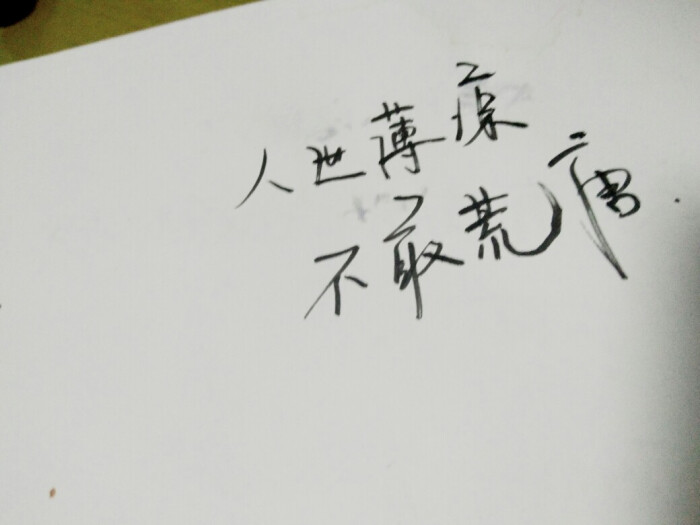 人世薄
不敢荒唐